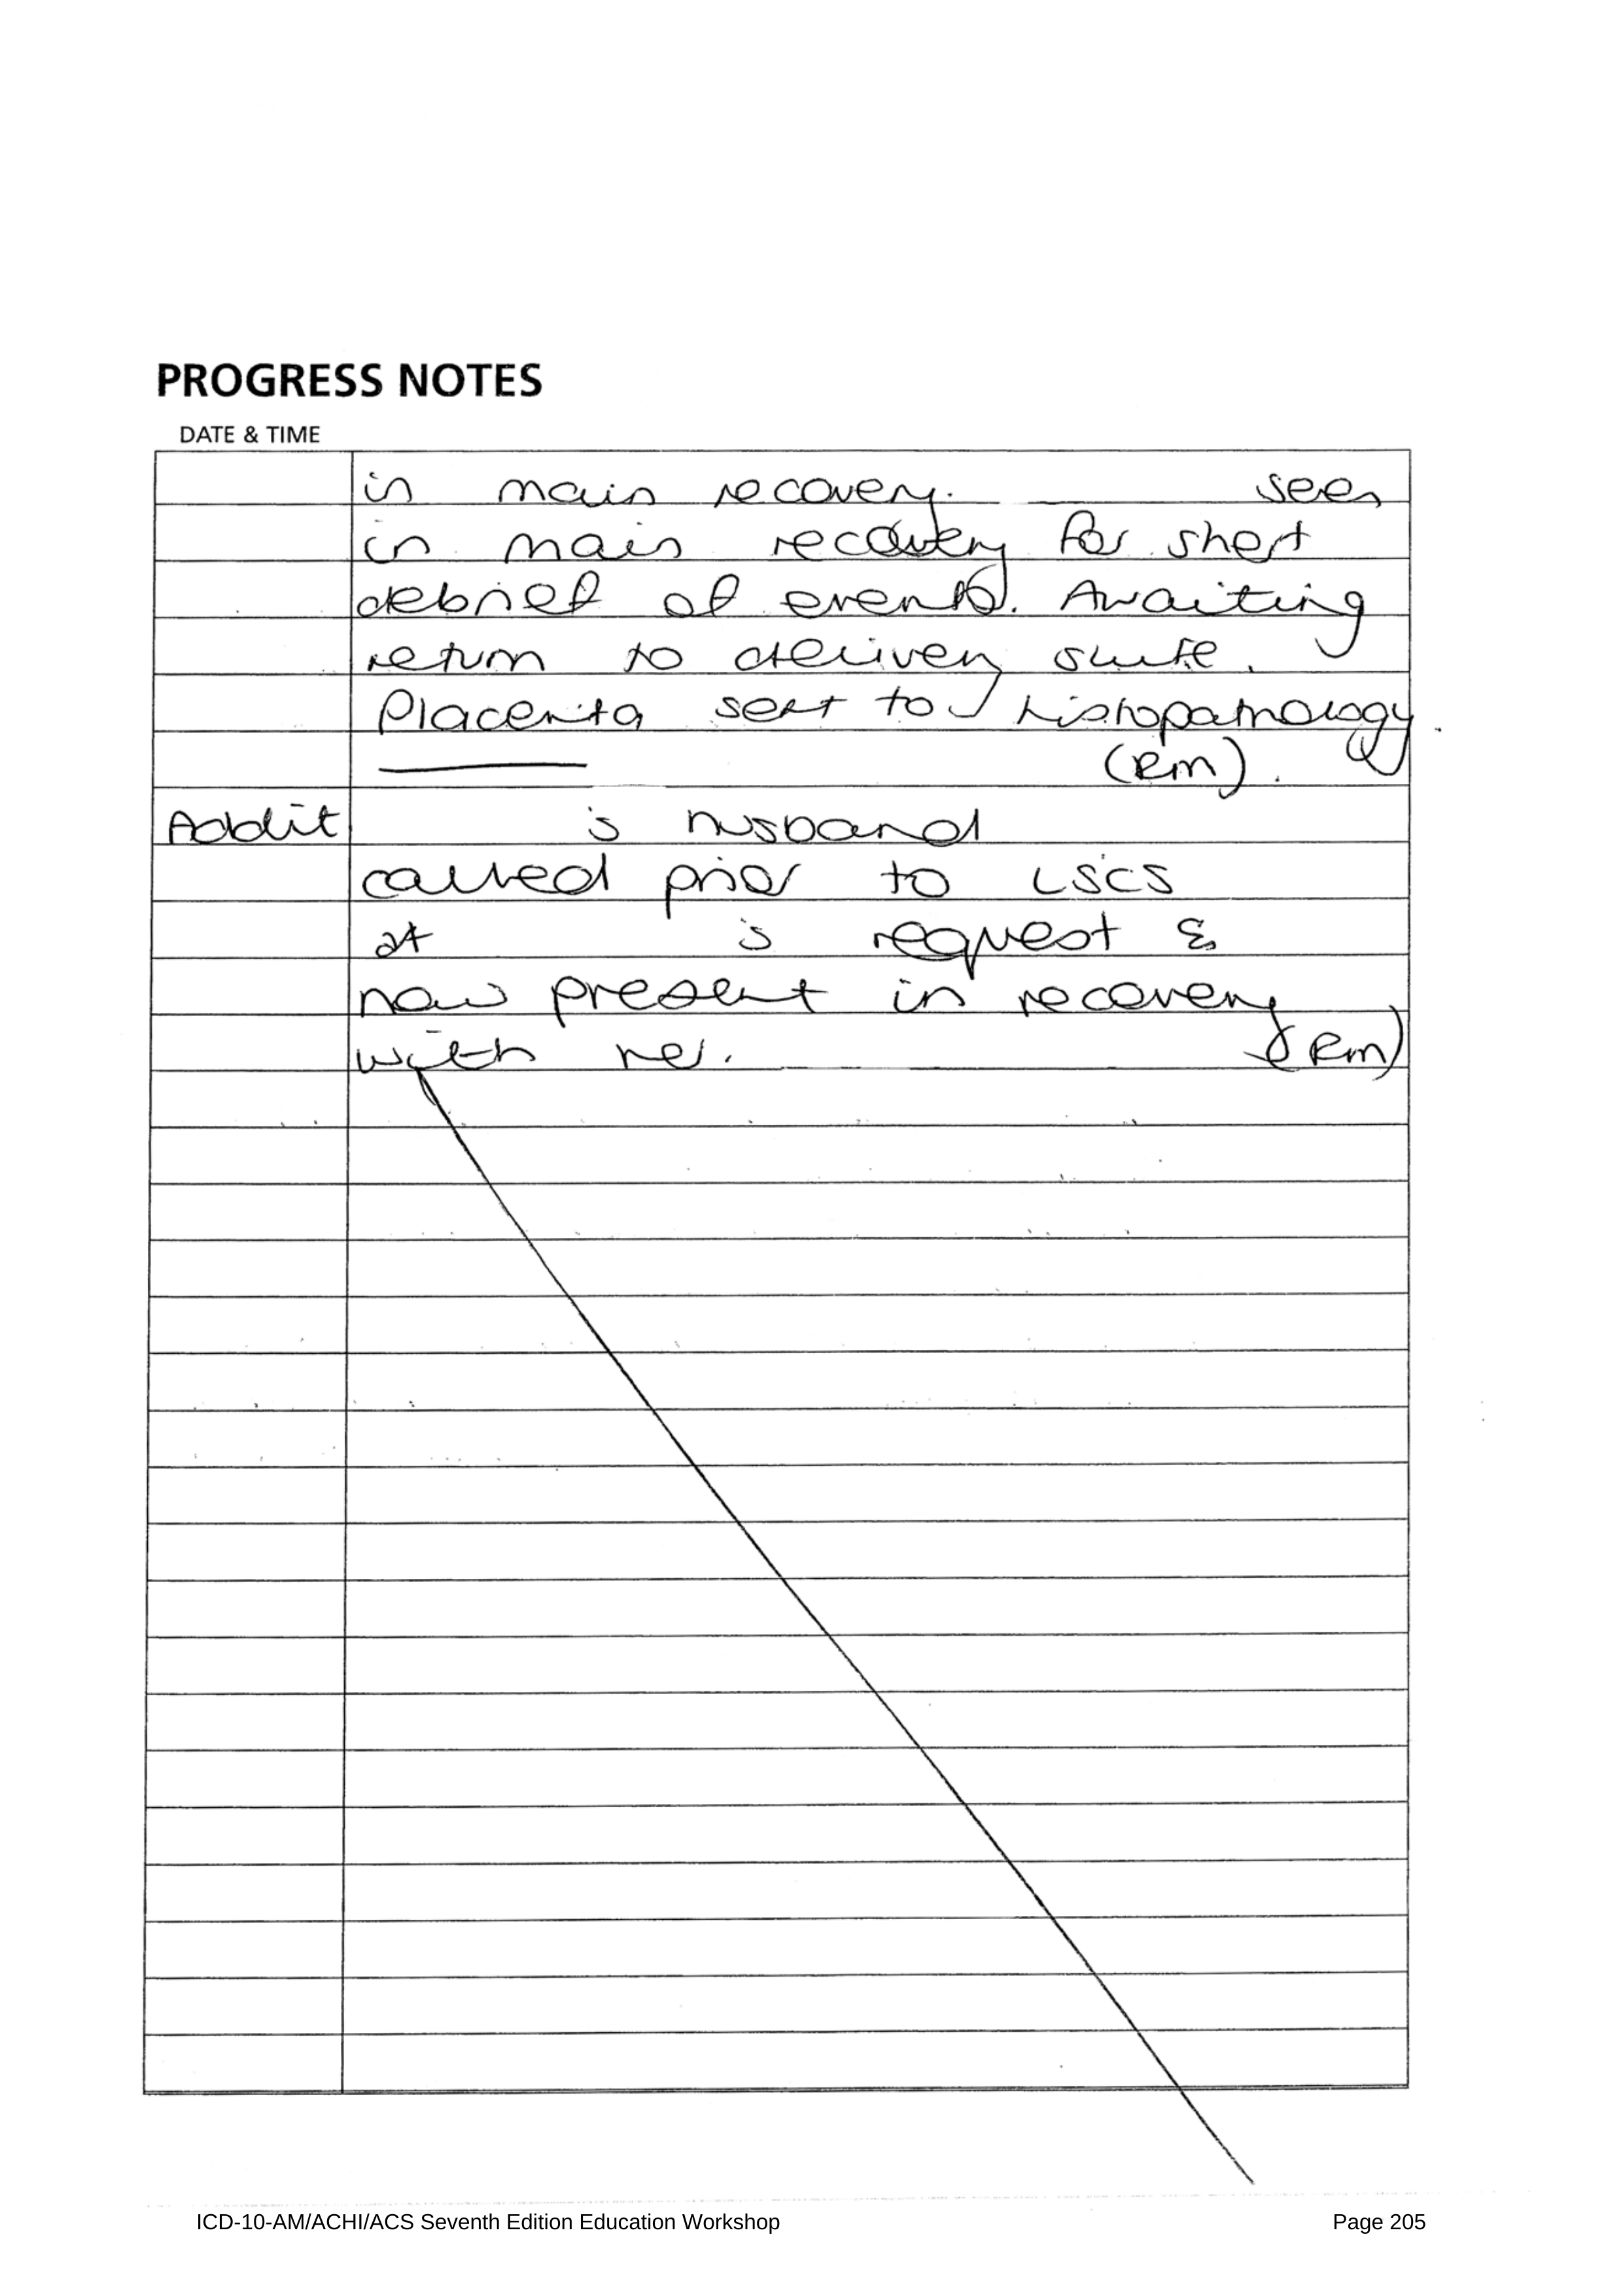 PROGRESS NOTES
DATE & TIME
in main recovery. seen
in main recovery for short
debrief of events. Awaiting
return to delivery suite.
Placenta sent to histopathology.
(RM).
Addit 's husband
called prior to LSCS
at 's request &
now present in recovery
with her. (RM)
ICD-10-AM/ACHI/ACS Seventh Edition Education Workshop Page 205